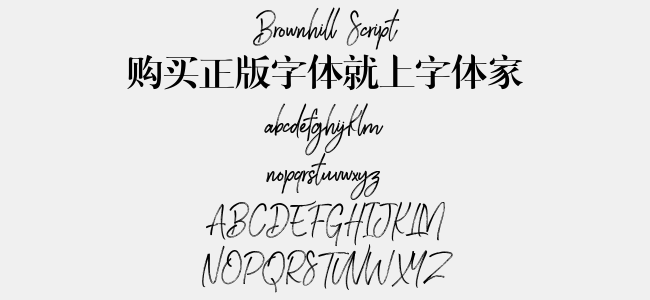 Brownhill Script
购买正版字体就上字体家
abcdefghijklm
nopqrstuvwxyz
ABCDEFGHIJKLM
NOPQRSTUVWXYZ